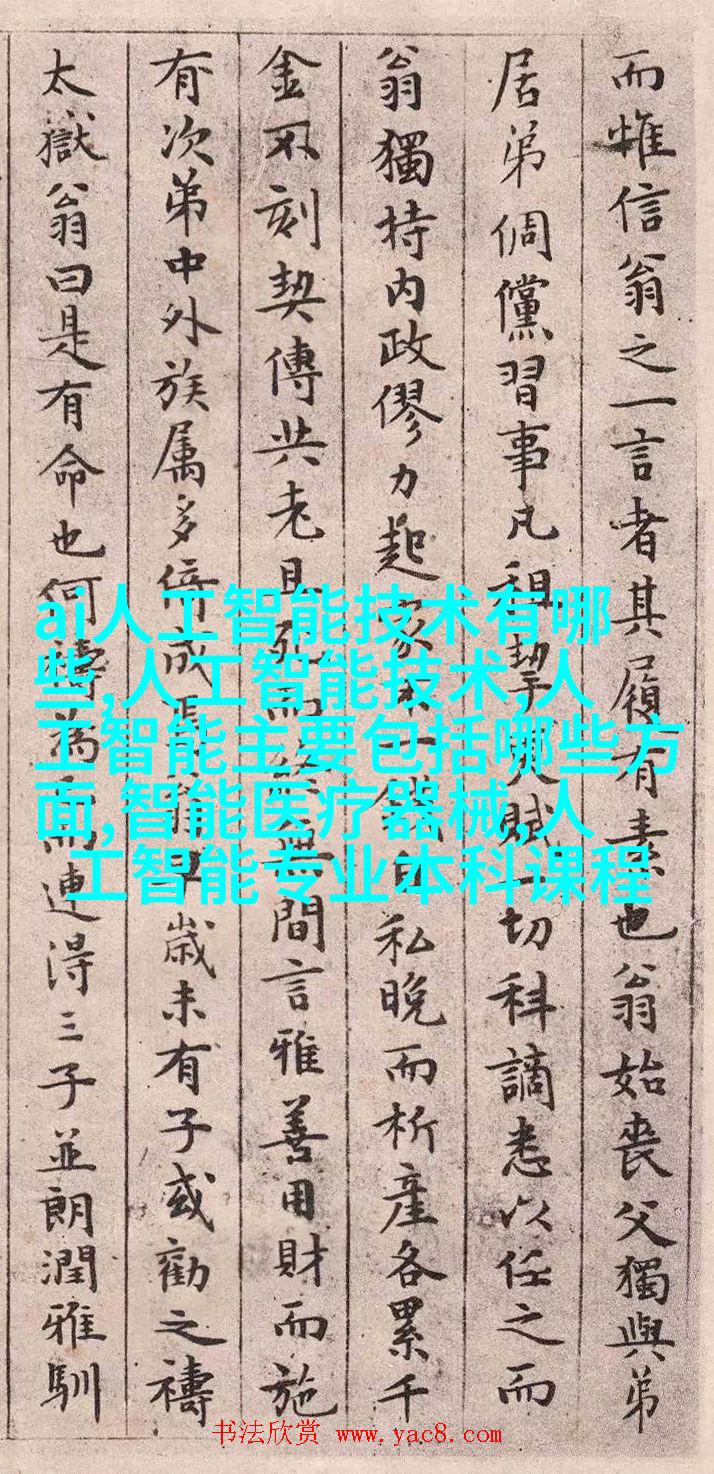 而惟信翁之一言者其履有素也翁始喪父獨與弟
居弟倜儻習事凡租挈賦一切科謫悉以任之而
翁獨持内政僇力起家不一錢自私晚而析產各累千
金不刻契傳共老且死而終無間言雅善用財而施
有次弟中外族属多倚成焉歲未有子或勸之禱
太嶽翁曰是有命也何禱為而連得三子並朗潤雅馴
ai人工智能技术有哪
些,人工智能技术,人
工智能主要包括哪些方
面,智能医疗器械,人
工智能专业本科课程
书法欣赏 www.yac8.com